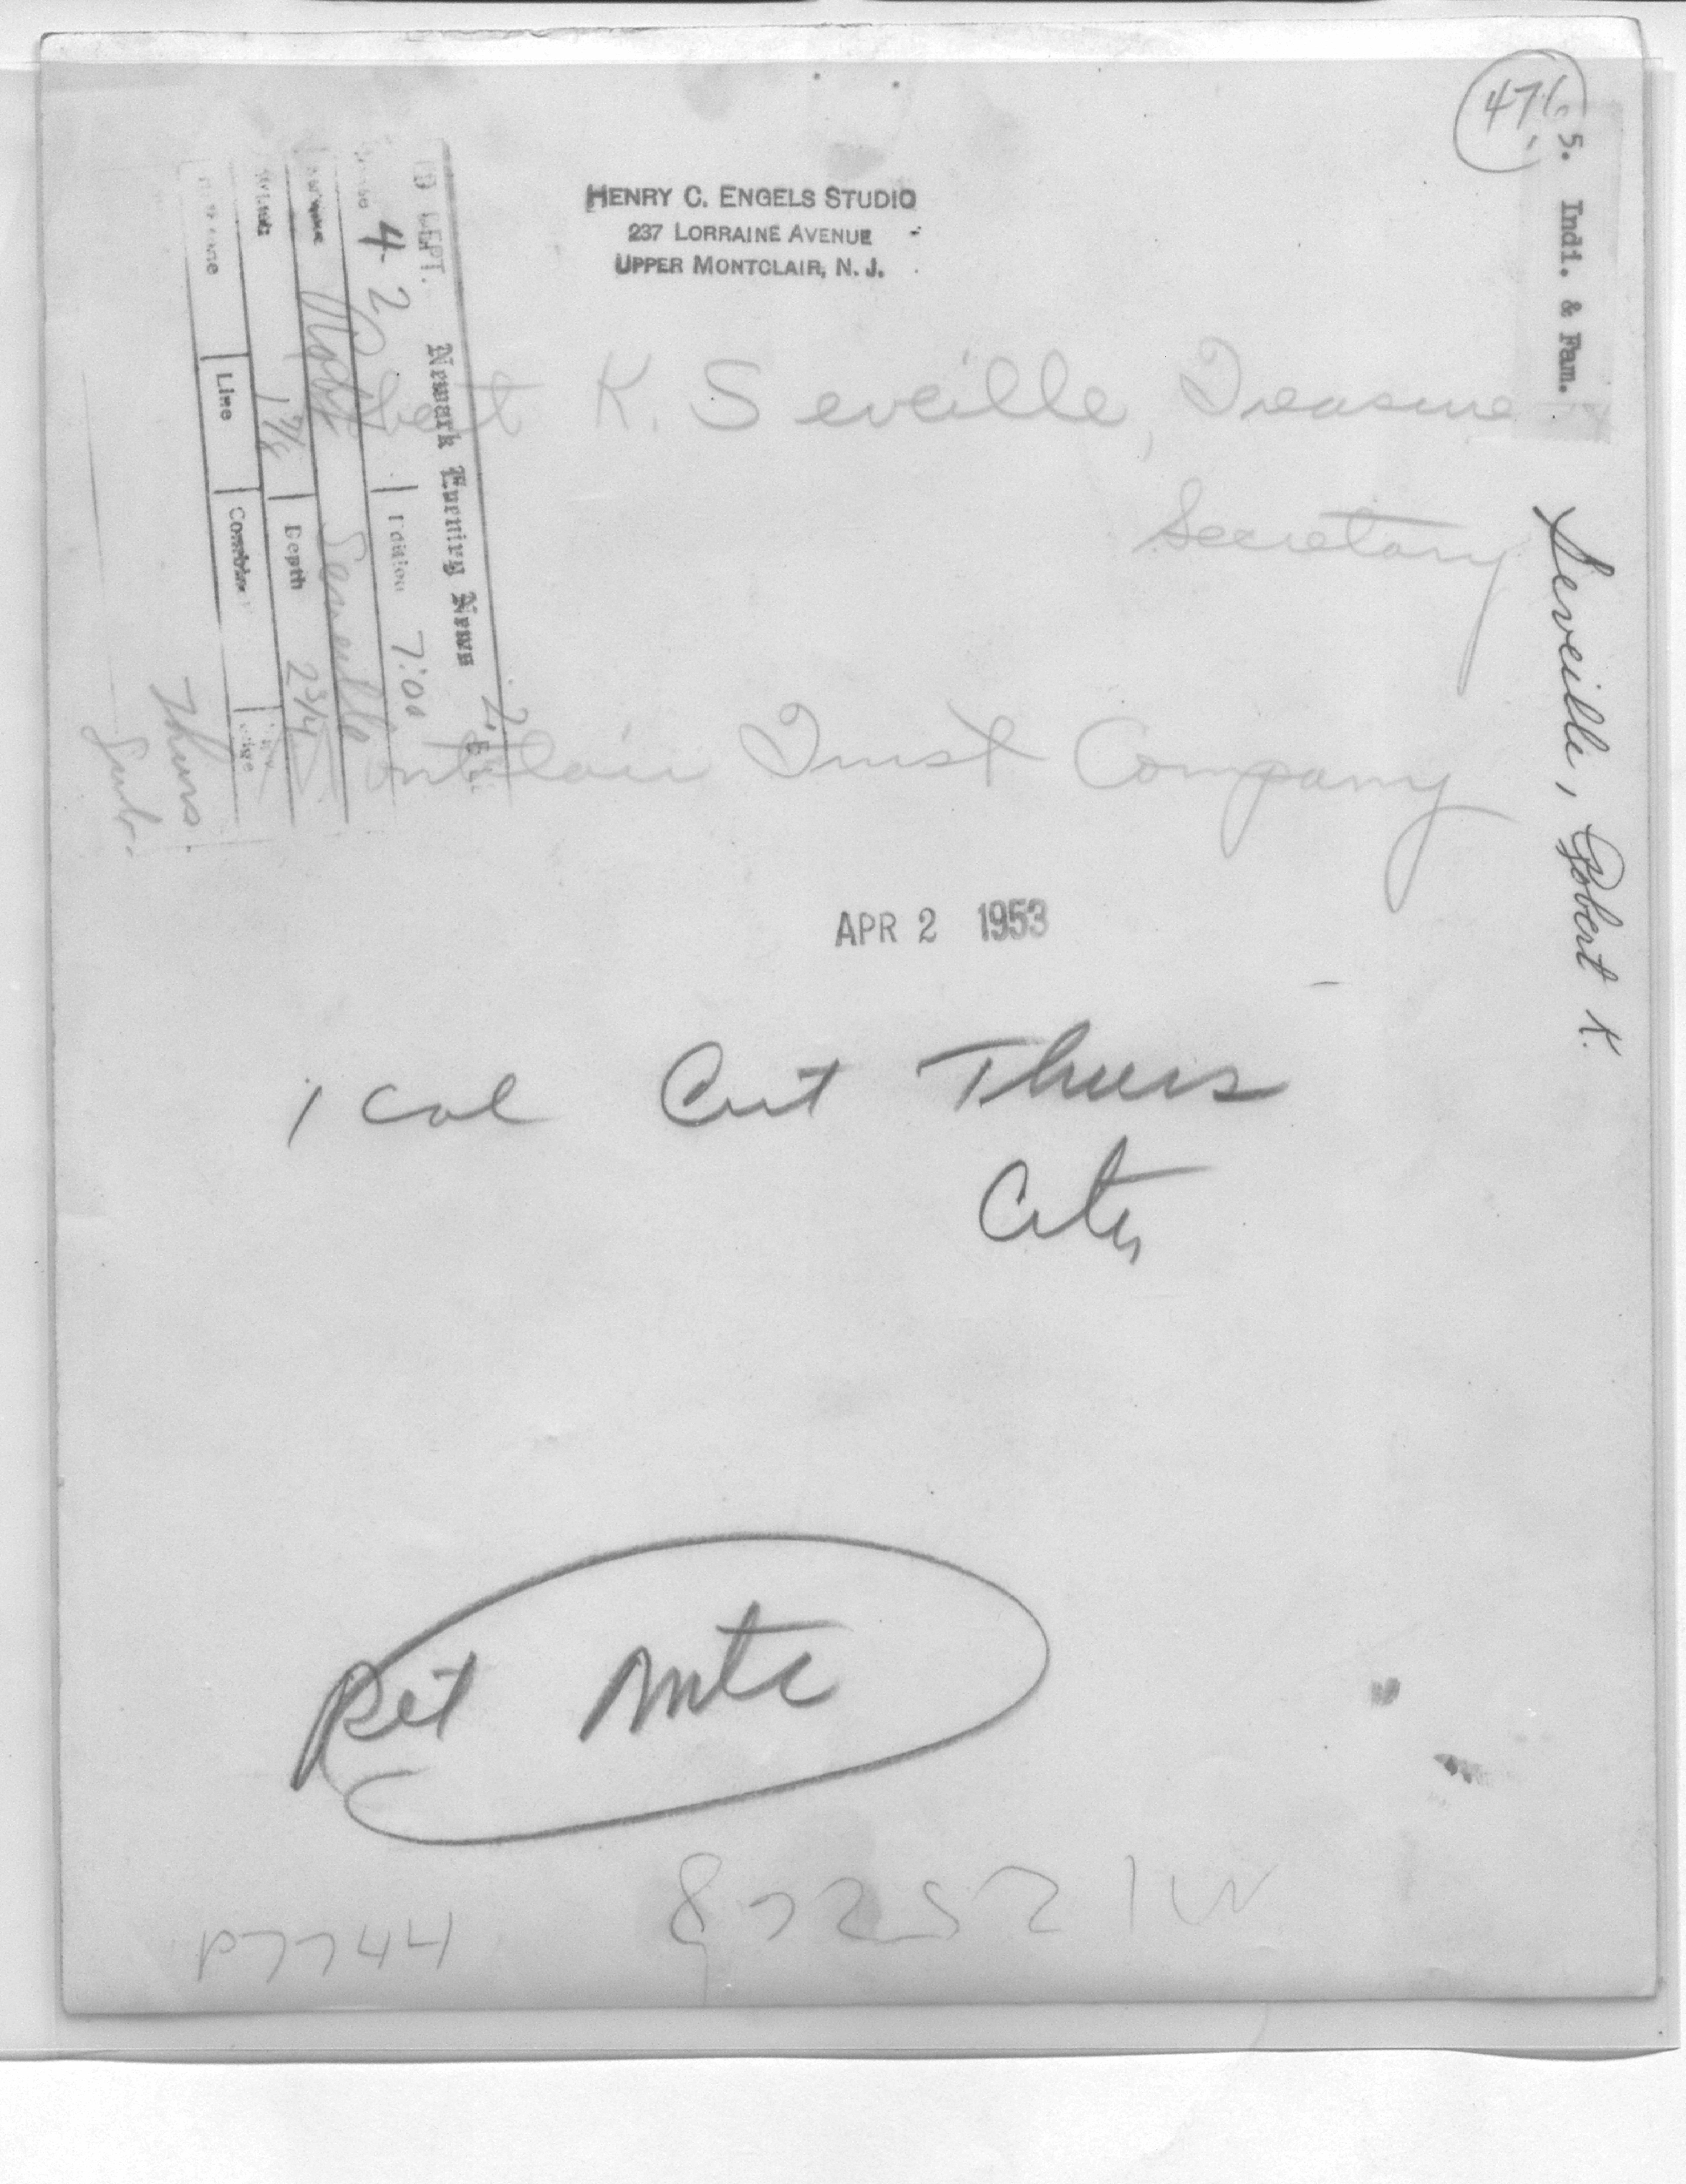 476
5. Indi. & Fam.
HENRY C. ENGELS STUDIO
237 LORRAINE AVENUE
UPPER MONTCLAIR, N. J.
DEPT.
Newark Evening News
4 2
Edition 7:00
Robt Seveille
1 7/8 Depth 2 3/4
Line
Thurs.
Robert K. Seveille, Treasure
Secretary
Montclair Trust Company
Seveille, Robert K.
APR 2 1953
1 Col Cut Thurs
City
Ret Mtc